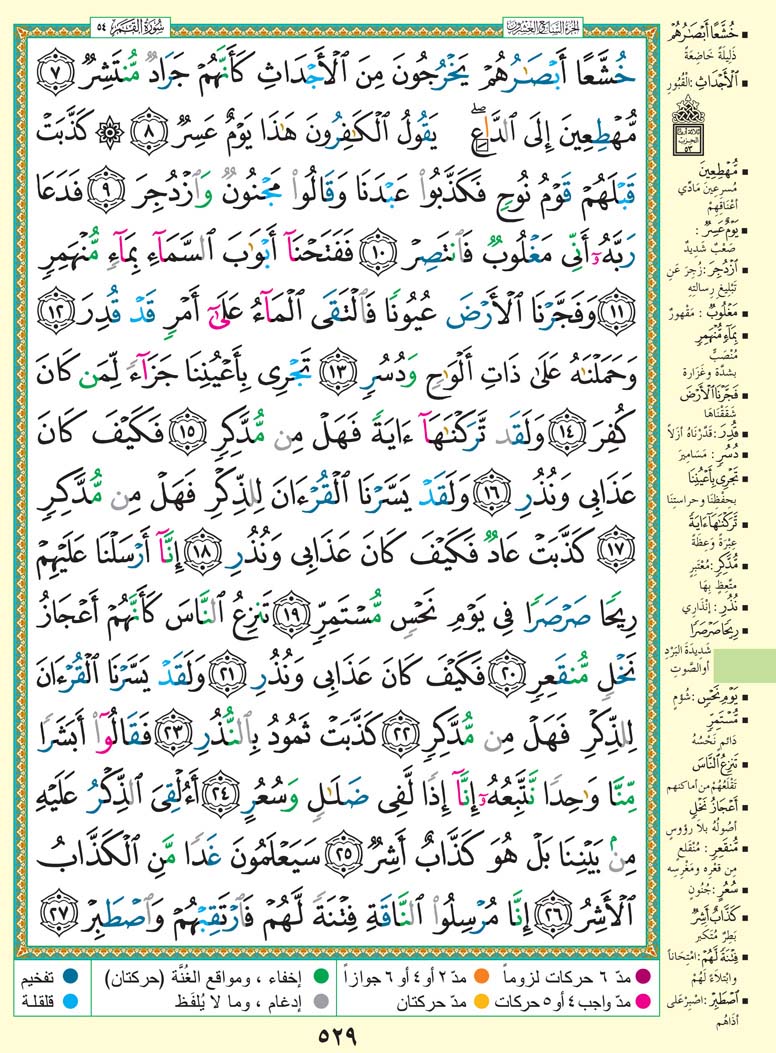 سُورَةُ القَمَرِ ٥٤
الجُزءُ السَّابِعُ وَالعِشْرُونَ
خُشَّعًا أَبْصَٰرُهُمْ يَخْرُجُونَ مِنَ ٱلْأَجْدَاثِ كَأَنَّهُمْ جَرَادٌ مُّنتَشِرٌ ٧
مُّهْطِعِينَ إِلَى ٱلدَّاعِ ۖ يَقُولُ ٱلْكَٰفِرُونَ هَٰذَا يَوْمٌ عَسِرٌ ٨ ۞ كَذَّبَتْ
قَبْلَهُمْ قَوْمُ نُوحٍ فَكَذَّبُوا۟ عَبْدَنَا وَقَالُوا۟ مَجْنُونٌ وَٱزْدُجِرَ ٩ فَدَعَا
رَبَّهُۥٓ أَنِّى مَغْلُوبٌ فَٱنتَصِرْ ١٠ فَفَتَحْنَآ أَبْوَٰبَ ٱلسَّمَآءِ بِمَآءٍ مُّنْهَمِرٍ
١١ وَفَجَّرْنَا ٱلْأَرْضَ عُيُونًا فَٱلْتَقَى ٱلْمَآءُ عَلَىٰٓ أَمْرٍ قَدْ قُدِرَ ١٢
وَحَمَلْنَٰهُ عَلَىٰ ذَاتِ أَلْوَٰحٍ وَدُسُرٍ ١٣ تَجْرِى بِأَعْيُنِنَا جَزَآءً لِّمَن كَانَ
كُفِرَ ١٤ وَلَقَد تَّرَكْنَٰهَآ ءَايَةً فَهَلْ مِن مُّدَّكِرٍ ١٥ فَكَيْفَ كَانَ
عَذَابِى وَنُذُرِ ١٦ وَلَقَدْ يَسَّرْنَا ٱلْقُرْءَانَ لِلذِّكْرِ فَهَلْ مِن مُّدَّكِرٍ
١٧ كَذَّبَتْ عَادٌ فَكَيْفَ كَانَ عَذَابِى وَنُذُرِ ١٨ إِنَّآ أَرْسَلْنَا عَلَيْهِمْ
رِيحًا صَرْصَرًا فِى يَوْمِ نَحْسٍ مُّسْتَمِرٍّ ١٩ تَنزِعُ ٱلنَّاسَ كَأَنَّهُمْ أَعْجَازُ
نَخْلٍ مُّنقَعِرٍ ٢٠ فَكَيْفَ كَانَ عَذَابِى وَنُذُرِ ٢١ وَلَقَدْ يَسَّرْنَا ٱلْقُرْءَانَ
لِلذِّكْرِ فَهَلْ مِن مُّدَّكِرٍ ٢٢ كَذَّبَتْ ثَمُودُ بِٱلنُّذُرِ ٢٣ فَقَالُوٓا۟ أَبَشَرًا
مِّنَّا وَٰحِدًا نَّتَّبِعُهُۥٓ إِنَّآ إِذًا لَّفِى ضَلَٰلٍ وَسُعُرٍ ٢٤ أَءُلْقِىَ ٱلذِّكْرُ عَلَيْهِ
مِنۢ بَيْنِنَا بَلْ هُوَ كَذَّابٌ أَشِرٌ ٢٥ سَيَعْلَمُونَ غَدًا مَّنِ ٱلْكَذَّابُ
ٱلْأَشِرُ ٢٦ إِنَّا مُرْسِلُوا۟ ٱلنَّاقَةِ فِتْنَةً لَّهُمْ فَٱرْتَقِبْهُمْ وَٱصْطَبِرْ ٢٧
خُشَّعًا أَبْصَٰرُهُمْ
ذَلِيلَةً خَاضِعَةً
ٱلْأَجْدَاثِ: القُبُورِ
مُّهْطِعِينَ
مُسرِعينَ مَادِّي
أعْنَاقِهِمْ
يَوْمٌ عَسِرٌ:
صَعْبٌ شَدِيدٌ
ٱزْدُجِرَ: زُجِرَ عَن
تَبْلِيغِ رِسالتِهِ
مَغْلُوبٌ: مَقْهُورٌ
بِمَآءٍ مُّنْهَمِرٍ
مُنْصَبٍّ
بشدَّة وغَزارة
فَجَّرْنَا ٱلْأَرْضَ
شَقَقْنَاهَا
قُدِرَ: قَدَّرْنَاهُ أزَلاً
دُسُرٍ: مَسَامِيرَ
تَجْرِى بِأَعْيُنِنَا
بِحِفْظِنَا وحِراستِنَا
تَّرَكْنَٰهَآ ءَايَةً
عِبْرَةً وَعِظَةً
مُّدَّكِرٍ: مُعْتَبِرٍ
مُتَّعِظٍ بِهَا
نُذُرِ: إنْذَارِي
رِيحًا صَرْصَرًا
شَدِيدَةَ البَرْدِ
أو الصَّوتِ
يَوْمِ نَحْسٍ: شُؤمٍ
مُّسْتَمِرٍّ
دَائِمٍ نَحْسُهُ
تَنزِعُ ٱلنَّاسَ
تَقْلَعُهُمْ مِن أماكنهم
أَعْجَازُ نَخْلٍ
أصُولُه بلا رؤوس
مُّنقَعِرٍ: مُنْقَلِعٍ
مِن قَعْرِه ومَغْرِسِه
سُعُرٍ: جُنُونٍ
كَذَّابٌ أَشِرٌ
بَطِرٌ مُتَكبِّر
فِتْنَةً لَّهُمْ: امْتِحَاناً
وابْتِلاءً لَهُمْ
ٱصْطَبِرْ: اصْبِرْ عَلى
أذَاهُمْ
مدّ ٦ حركات لزوماً
مدّ ٢ أو ٤ أو ٦ جوازاً
إخفاء ، ومواقع الغُنَّة (حركتان)
تفخيم
مدّ واجب ٤ أو ٥ حركات
مدّ حركتان
إدغام ، وما لا يُلفَظ
قلقلة
٥٢٩